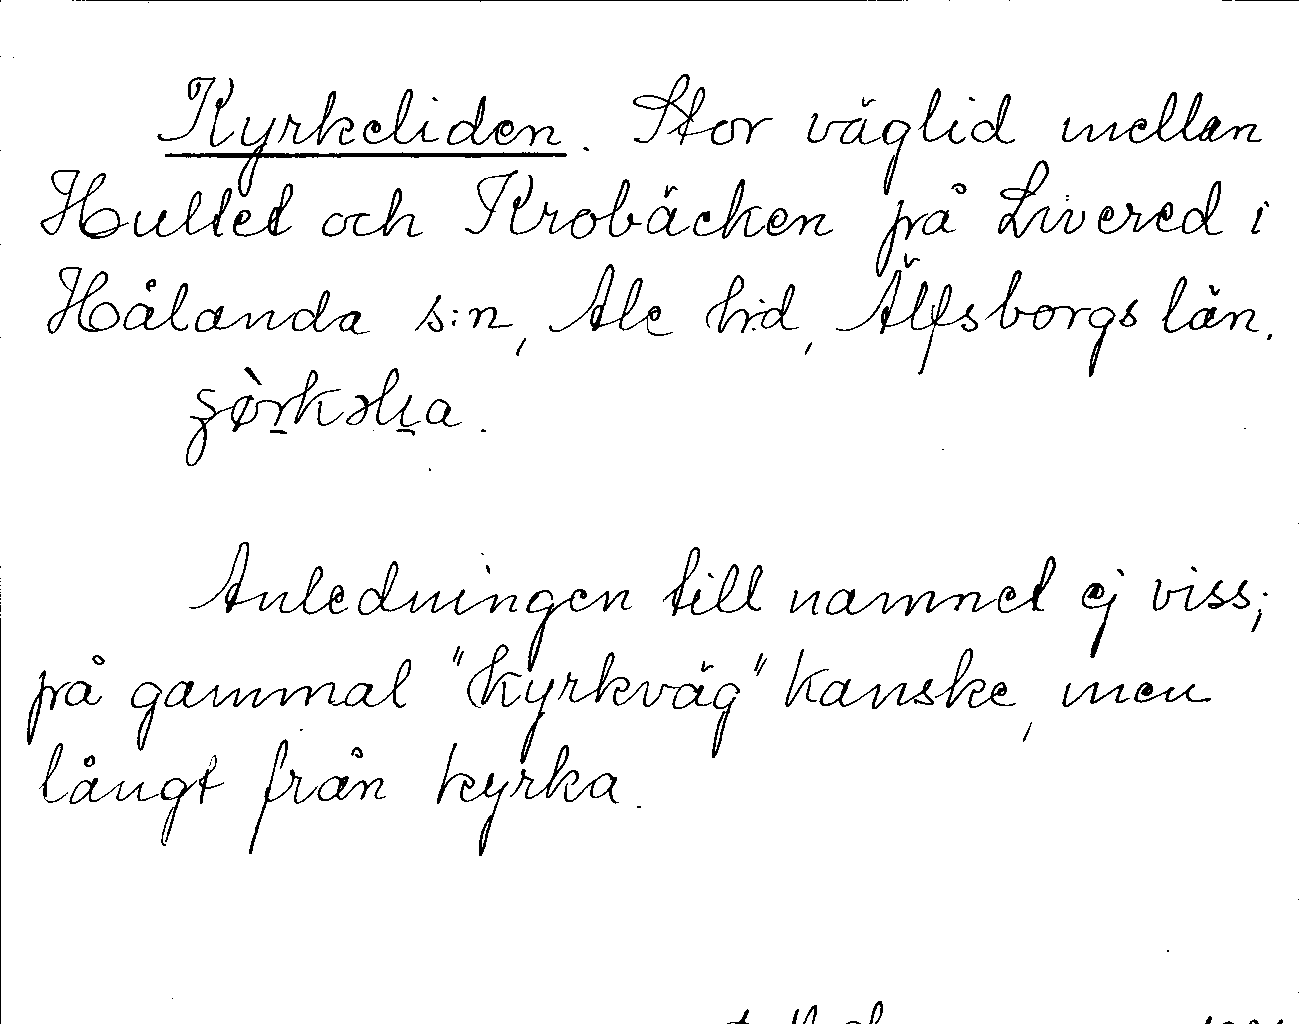 Kyrkeliden. Stor väglid mellan
Hultet och Krobäcken på Livered i
Hålanda s:n, Ale h:d, Älfsborgs län.
Anledningen till namnet ej viss;
på gammal "kyrkväg" kanske, men
långt från kyrka.